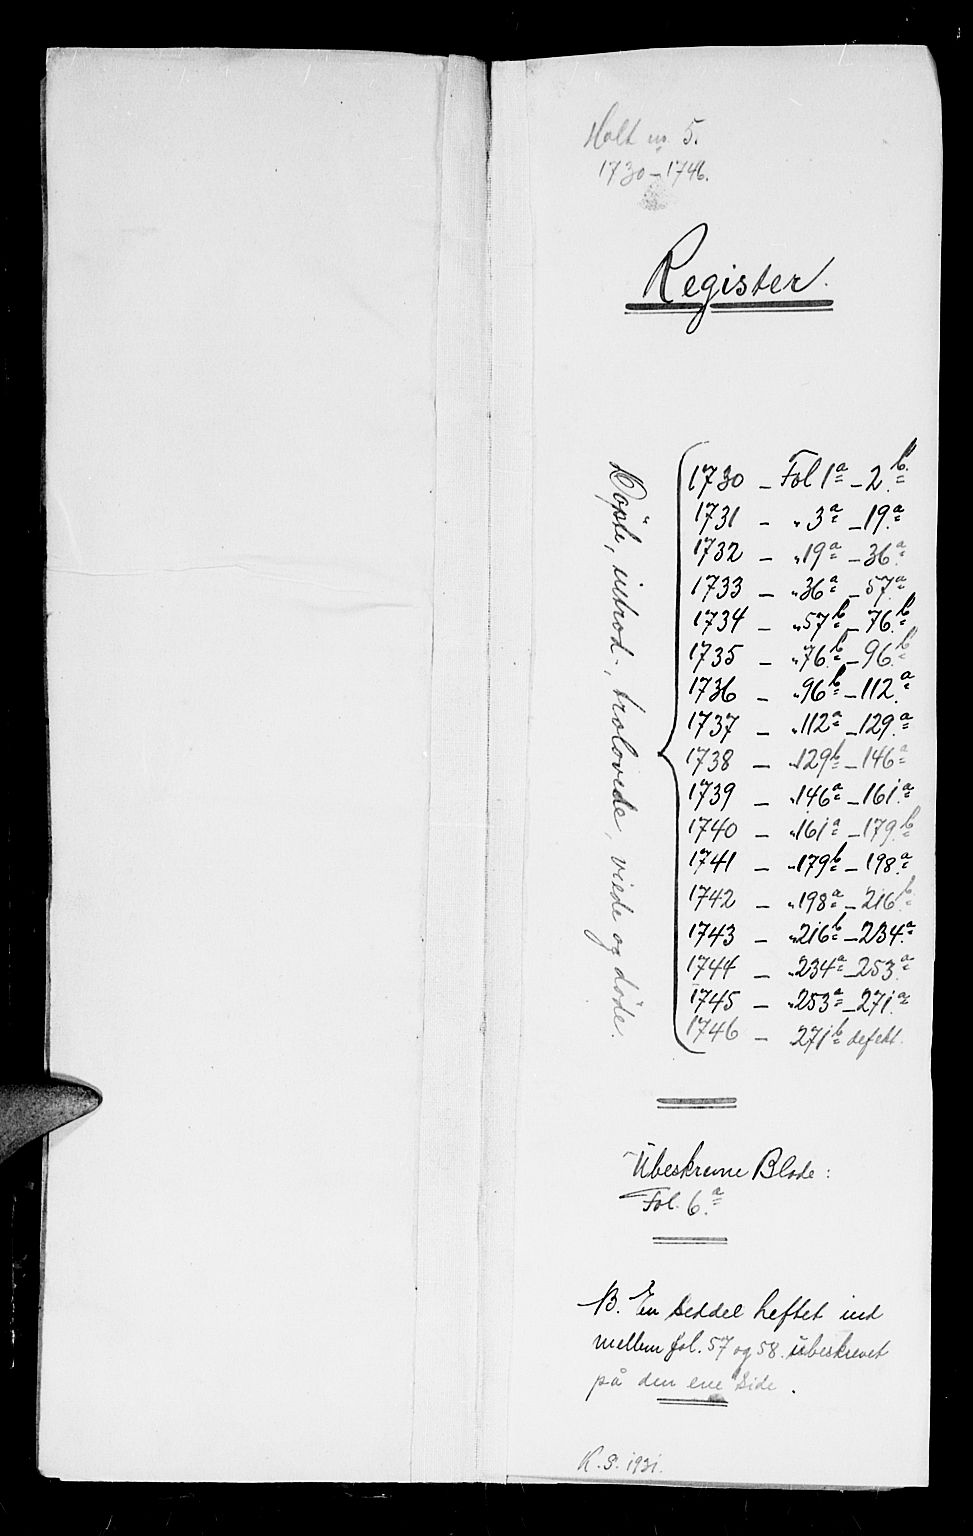 Holt nr. 5.
1730–1746.
Register.
Döpte, introd-, trolovede, viede og döde.
1730 – Fol 1a – 2.b
1731 – „ 3a – 19.a
1732 – „ 19a – 36.a
1733 – „ 36a – 57a
1734 – „ 57b – 76.b
1735 – „ 76.b – 96.b
1736 – „ 96b – 112.a
1737 – „ 112a – 129.a
1738 – „ 129b – 146a
1739 – „ 146a – 161.a
1740 – „ 161a – 179.b
1741 – „ 179b – 198.a
1742 – „ 198a – 216.b
1743 – „ 216b – 234.a
1744 – „ 234a – 253.a
1745 – „ 253a – 271.a
1746 – 271b defekt.
Ubeskrevne Blade:
Fol. 6.a
NB. En Seddel heftet ind
mellem fol. 57 og 58. ubeskrevet
på den ene Side.
K. S. 1931.